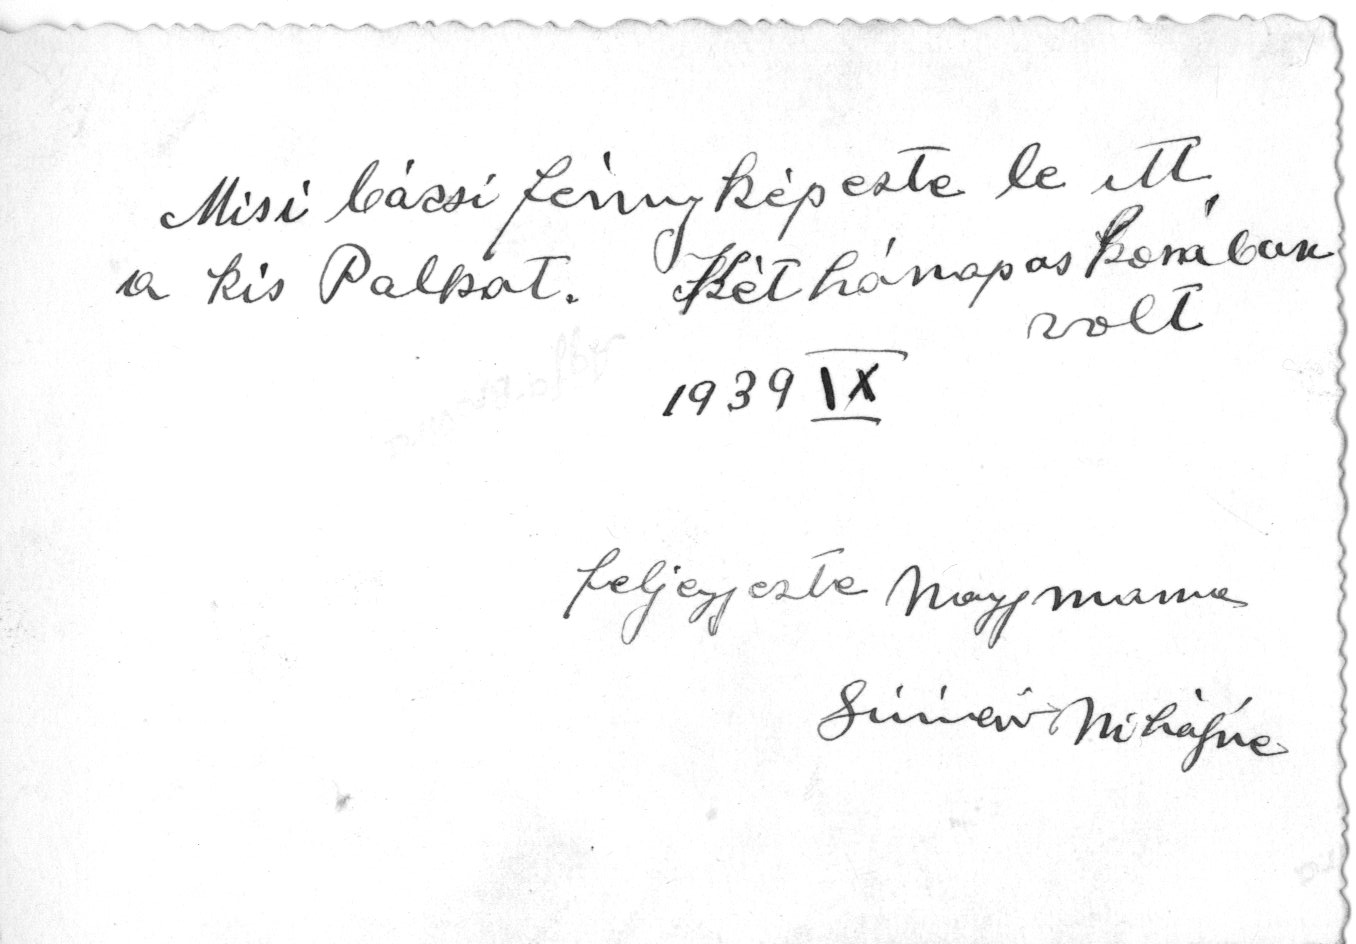 Misi bácsi fényképezte le itt
a kis Palkot. Két hónapos korában
volt
1939 IX
feljegyezte Nagymama
Mihályné